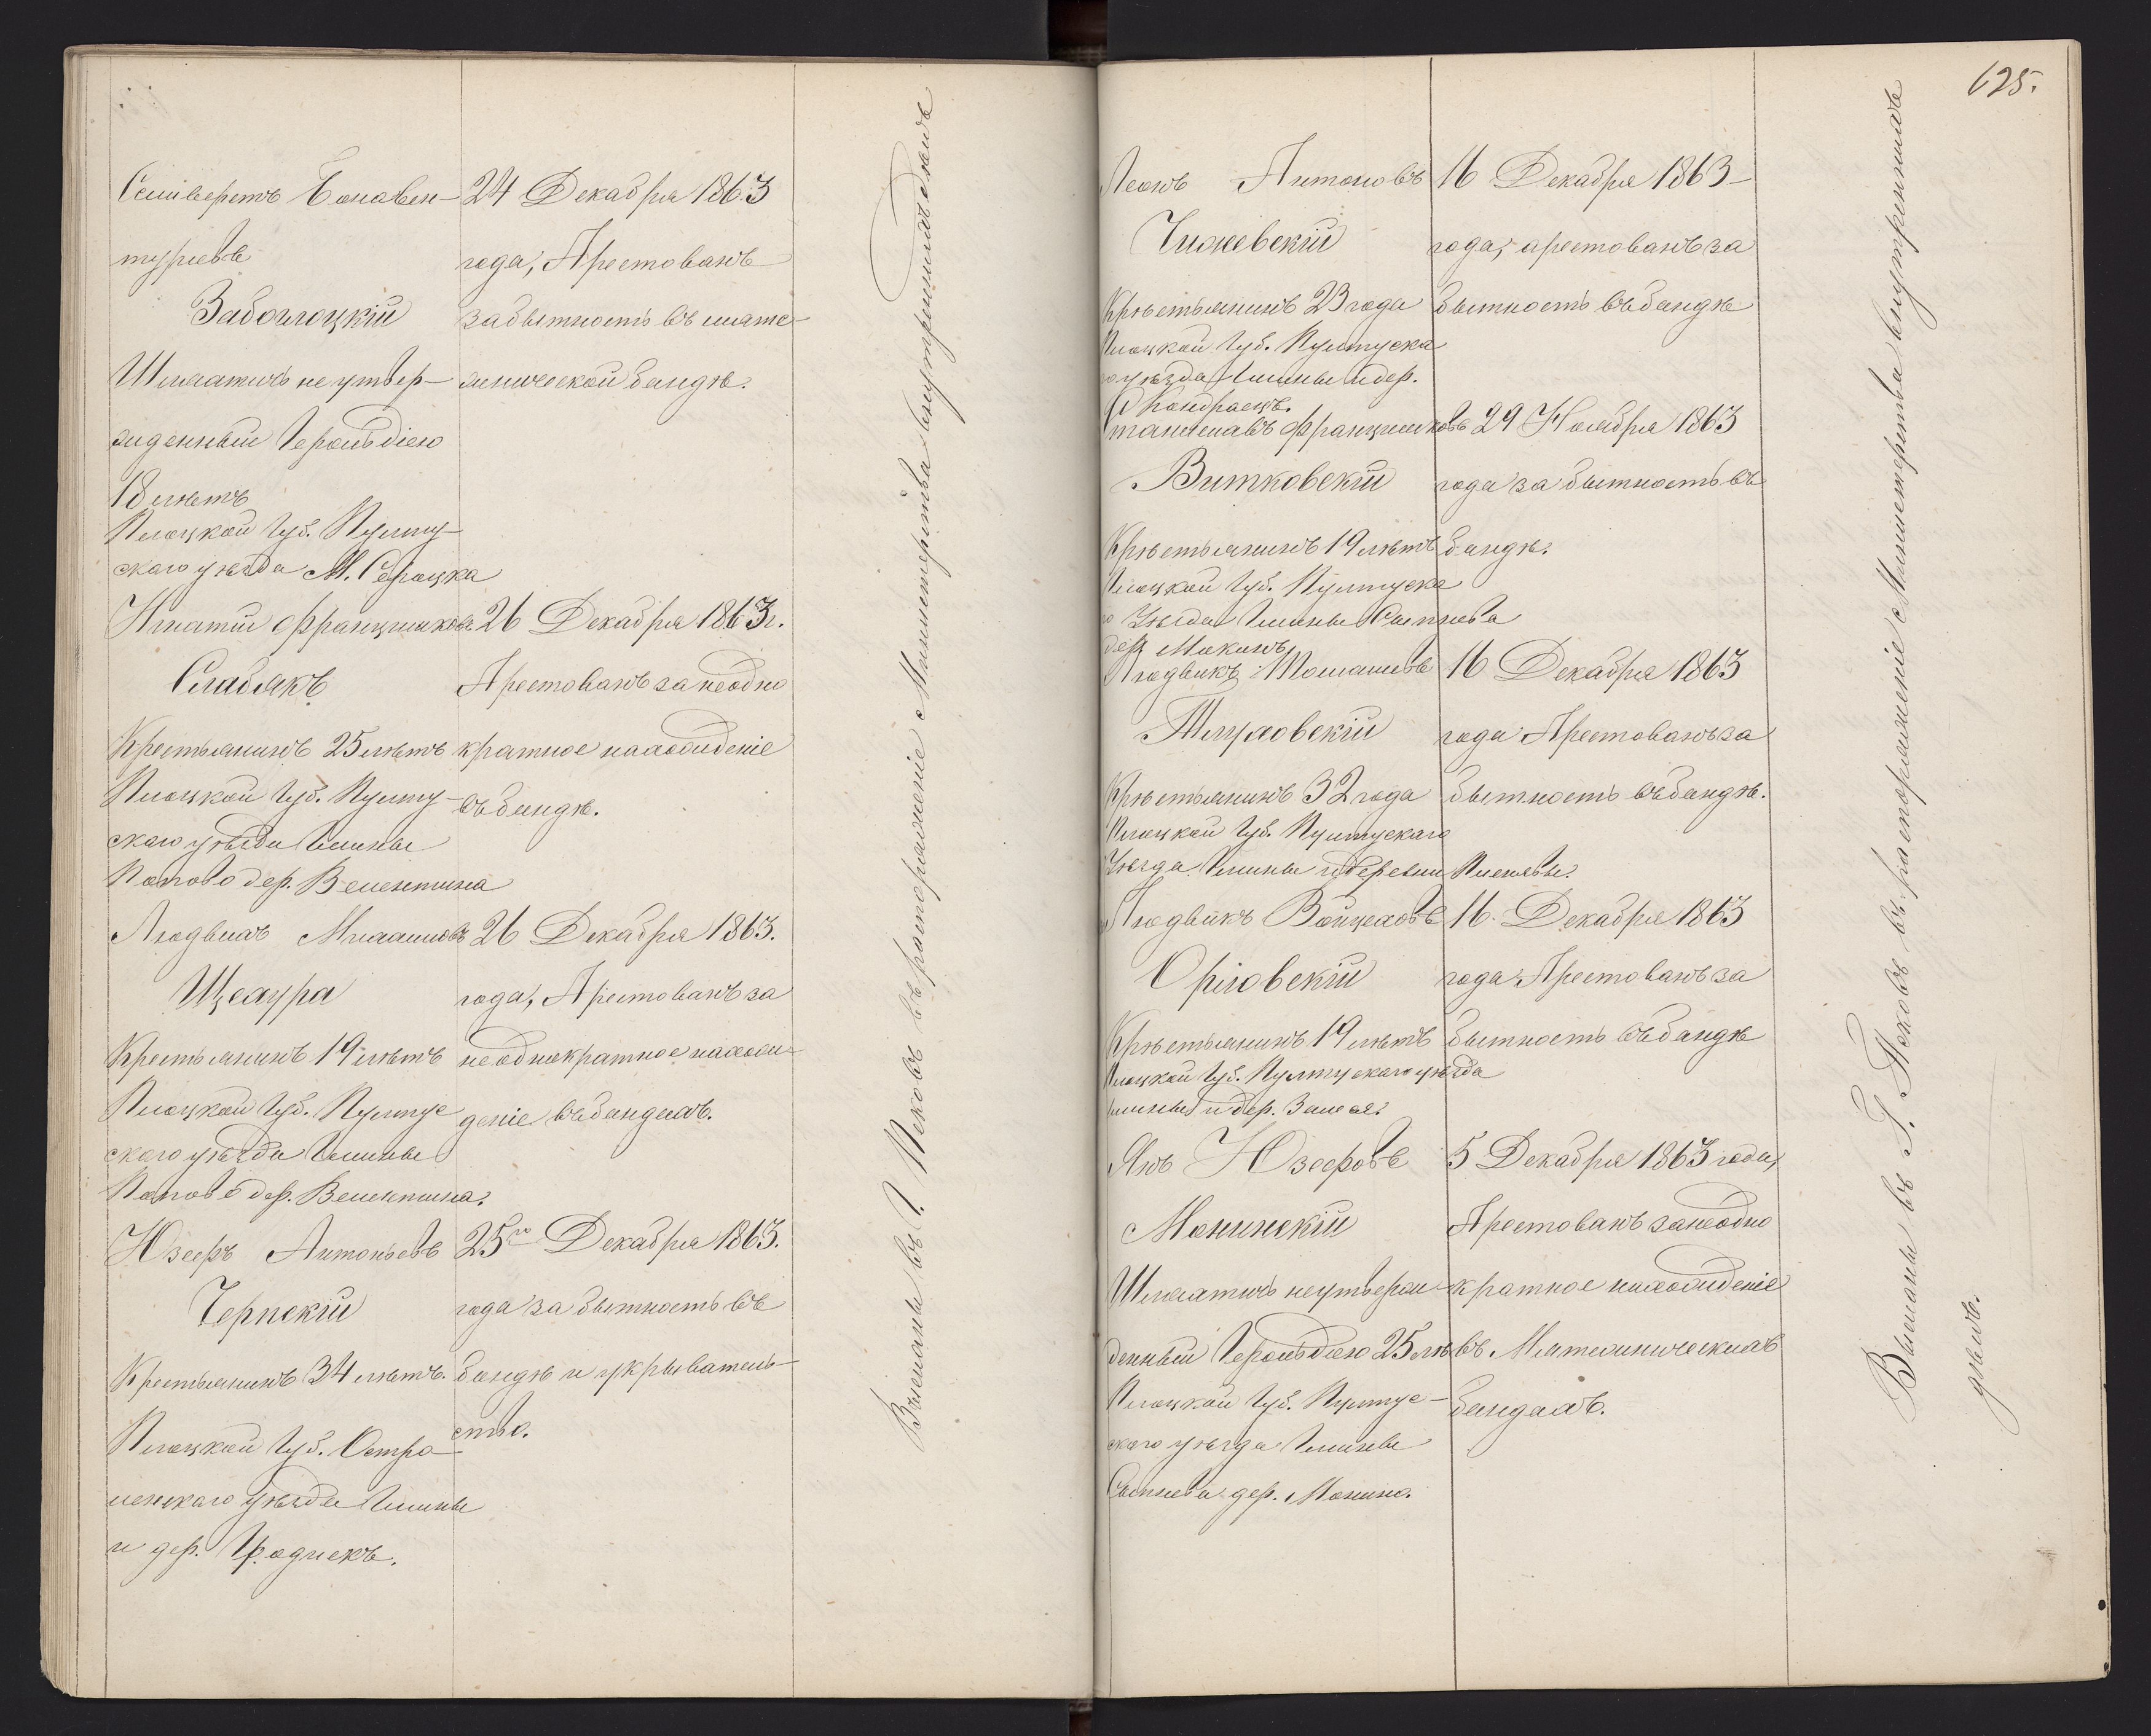 Сеиверетъ Бонавен-
туріевъ
Заболоцкій
Шляхтичь не утвер-
жденный Герольдіею
18 лѣтъ
Плоцкой Губ. Пулту-
скаго уѣзда М. Сероцка
24 Декабря 1863
года, Арестованъ
за бытность въ мяте-
жнической бандѣ.
Игнатій Францишковъ
Слабякъ
Крестьянинъ 25 лѣтъ
Плоцкой Губ. Пулту-
скаго уѣзда Гмины
Попово дер. Велентина
26 Декабря 1863 г.
Арестованъ за неодно
кратное нахожденіе
въ бандѣ.
Людвихъ Михаиловъ
Щехура
Крестьянинъ 19 лѣтъ
Плоцкой Губ. Пултус
скаго уѣзда Гмины
Попово дер. Велентина.
26 Декабря 1863.
года, Арестованъ за
неоднократное нахож-
деніе въ бандахъ.
Юзефъ Антоньевъ
Черпскій
Крестьянинъ 34 лѣтъ.
Плоцкой Губ. Остро
ленскаго уѣзда Гмины
и дер. Гродискъ.
25го Декабря 1863.
года за бытность въ
бандѣ и укрыватель-
ство.
Высланы въ Г. Псковъ въ распоряженіе Министерства внутреннихъ дѣлъ
625.
Леонъ Антоновъ
Чижевскій
Крѣстьянинъ 23 года
Плоцкой Губ. Пултуска
го уѣзда Гмины и дер.
Кондраецъ.
16 Декабря 1863-
года, арестованъ за
бытность въ бандѣ
Станиславъ Францишковъ
Витковскій
Крѣстьянинъ 19 лѣтъ
Плоцкой Губ. Пултуска
го Уѣзда Гмины
дер.
29 Ноября 1863
года за бытность въ
бандѣ.
Людвикъ Томашевъ
Тлуховскій
Крѣстьянинъ 32 года
Плоцкой Губ. Пултускаго
Уѣзда Гмины и деревни
16 Декабря 1863
года Арестованъ за
бытность въ бандѣ.
Людвикъ Войцеховъ
Орловскій
Крѣстьянинъ 19 лѣтъ
Плоцкой Губ. Пултускаго уѣзда
Гмины и дер.
16 Декабря 1863
года Арестованъ за
бытность въ бандѣ
Янъ Юзефовъ
Монинскій
Шляхтичь неутверж-
денный Герольдіею 25 лѣ
Плоцкой Губ. Пултус-
скаго уѣзда Гмины
дер. Монино.
5 Декабря 1863 года,
Арестованъ за неодно
кратное нахожденіе
въ Мятежническихъ
бандахъ.
Высланы въ Г. Псковъ въ распоряженіе Министерства внутреннихъ
дѣлъ.